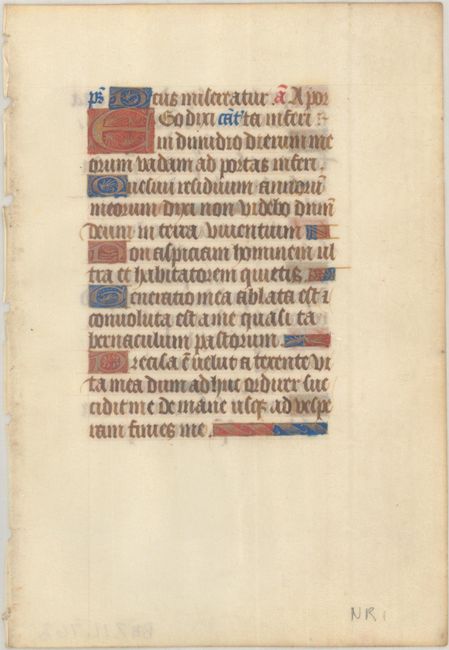 ps̄ Deus misereatur. añ A por
EGo dixi cant̄ ta inferi
in dimidio dierum me
orum vadam ad portas inferi.
Quesiui residuum annorū
meorum dixi non videbo dominū
deum in terra viuentium
Non aspiciam hominem ul
tra et habitatorem quietis.
Generatio mea ablata est ⁊
conuoluta est a me quasi ta
bernaculum pastorum
Precisa ē uelut a texente vi
ta mea dum adhuc ordirer suc
cidit me de mane usqꝫ ad vespe
ram finies me.
NR 1